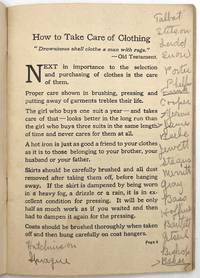 How to Take Care of Clothing
"Drowsiness shall clothe a man with rags."
—Old Testament.
NEXT in importance to the selection
and purchasing of clothes is the care
of them.
Proper care shown in brushing, pressing and
putting away of garments trebles their life.
The girl who buys one suit a year—and takes
care of that—looks better in the long run than
the girl who buys three suits in the same length
of time and never cares for them at all.
A hot iron is just as good a friend to your clothes
as it is to those belonging to your brother, your
husband or your father.
Skirts should be carefully brushed and all dust
removed after taking them off, before hanging
away. If the skirt is dampened by being worn
in a heavy fog, a drizzle or a rain, it is in ex-
cellent condition for pressing. It will be only
half as much work as if you waited and then
had to dampen it again for the pressing.
Coats should be brushed thoroughly when taken
off and then hung carefully on coat hangers.
Page 5
Talbot
Stetson
Porter
Cooper
Jewett
Merritt
Gray
Bass
Hutchinson
Sprague